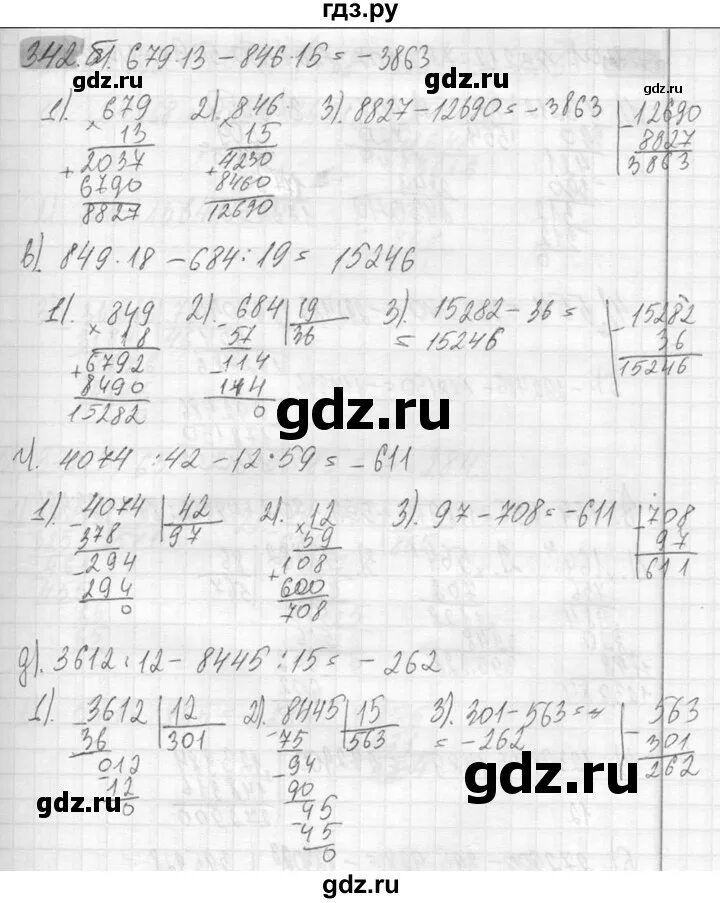 гдз.ру
342. б). 679·13 - 846·15 = -3863
gdz.ru gdz.ru
1). 679 2). 846 3). 8827-12690=-3863 -12690
×13 ×15 8827
+2037 +4230 3863
6790 8460
8827 12690
в). 849·18 - 684:19 = 15246
1). 849 2). -684 |19 3). 15282-36= -15282
×18 57 36 = 15246 36
+6792 -114 15246
8490 114
15282 0
gdz.ru
г). 4074:42-12·59 = -611
1). -4074 |42 2). ×12 3). 97-708=-611 -708
378 97 59 97
-294 +108 611
294 600
0 708
д). 3612:12 - 8445:15 = -262
1). -3612 |12 2). -8445 |15 3). 301-563= -563
36 301 75 563 = -262 301
012 -94 262
-12 90
0 -45
-45
0
gdz.ru gdz.ru
gdz.ru